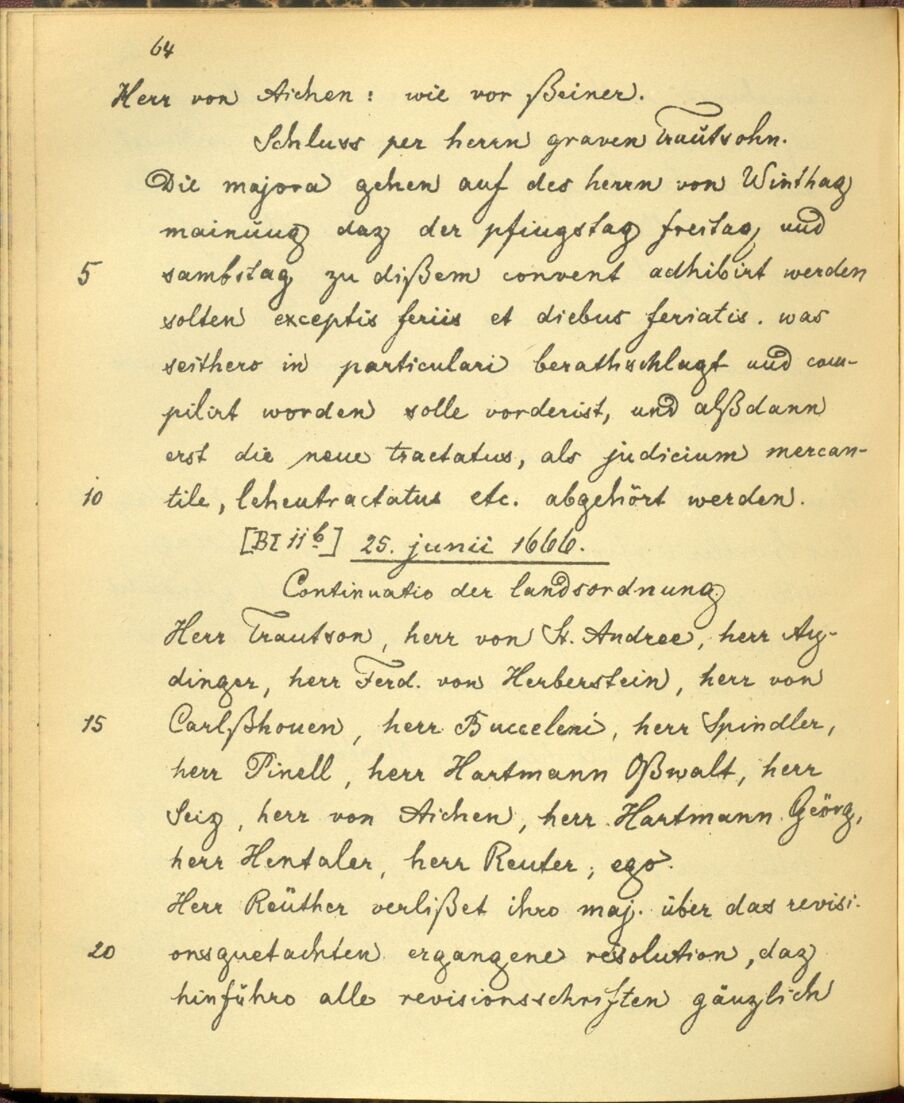 64
Herr von Aichen: wie vor ßeiner.
Schluss per herrn graven Trautsohn.
Die majora gehen auf des herrn von Winthag
mainung daz der pfingstag freitag und
5 sambstag zu dißem convent adhibirt werden
solten exceptis feriis et diebus feriatis. was
seithero in particulari berathschlagt und com-
pilirt worden solle vorderist, und alßdann
erst die neue tractatus, als judicium mercan-
10 tile, lehentractatus etc. abgehört werden.
[BI 11b] 25. junii 1666.
Continuatio der landsordnung
Herr Trautson, herr von St. Andree, herr Ay-
dinger, herr Ferd. von Herberstein, herr von
15 Carlßhouen, herr Bucceleni, herr Spindler,
herr Pinell, herr Hartmann Oßwalt, herr
Seiz, herr von Aichen, herr Hartmann Geörg,
herr Hentaler, herr Reuter, ego.
Herr Reüther verlißet ihro maj. über das revisi-
20 onsguetachten ergangene resolution, daz
hinführo alle revisionsschriften gänzlich